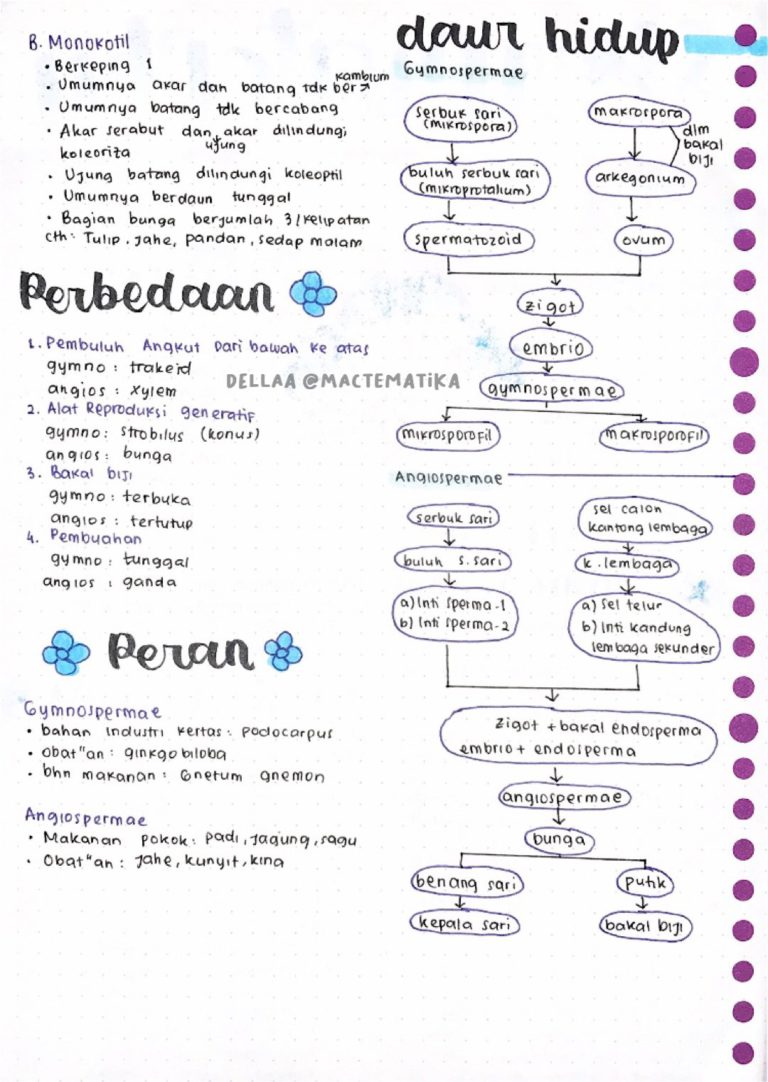 B. Monokotil
• Berkeping 1
• Umumnya akar dan batang tdk ber↗ kambium
• Umumnya batang tdk bercabang
• Akar serabut dan ujung akar dilindungi
koleoriza
• Ujung batang dilindungi koleoptil
• Umumnya berdaun tunggal
• Bagian bunga berjumlah 3/kelipatan
cth: Tulip, jahe, pandan, sedap malam
Perbedaan
1. Pembuluh Angkut Dari bawah ke atas
gymno : trakeid
angios : xylem
2. Alat Reproduksi generatif
gymno : strobilus (konus)
angios : bunga
3. Bakal biji
gymno : terbuka
angios : tertutup
4. Pembuahan
gymno : tunggal
angios : ganda
DELLAA @MACTEMATiKA
Peran
Gymnospermae
• bahan industri kertas : podocarpus
• obat"an : ginkgo biloba
• bhn makanan : Gnetum gnemon
Angiospermae
• Makanan pokok : padi, jagung, sagu
• Obat"an : jahe, kunyit, kina
daur hidup
Gymnospermae
serbuk sari
(mikrospora)
makrospora
dlm
bakal
biji
buluh serbuk sari
(mikroprotalium)
arkegonium
spermatozoid
ovum
zigot
embrio
gymnospermae
mikrosporofil
makrosporofil
Angiospermae
serbuk sari
sel calon
kantong lembaga
buluh s. sari
k. lembaga
a) Inti sperma-1
b) Inti sperma-2
a) sel telur
b) Inti kandung
lembaga sekunder
zigot + bakal endosperma
embrio + endosperma
angiospermae
bunga
benang sari
putik
kepala sari
bakal biji